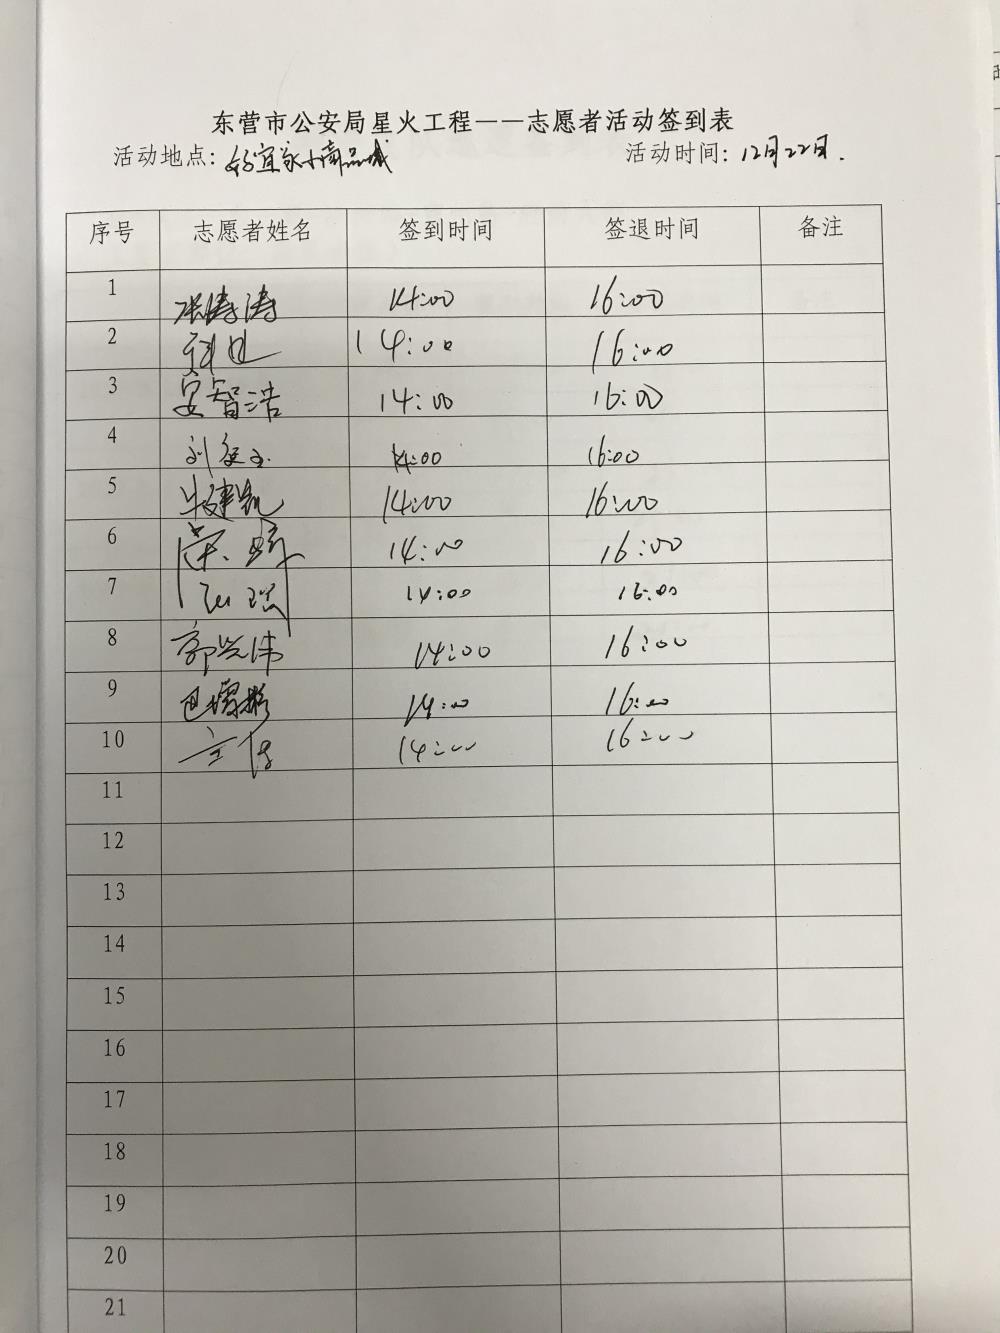 东营市公安局星火工程——志愿者活动签到表
活动地点：好宜家小商品城 活动时间：12月22日.
序号 志愿者姓名 签到时间 签退时间 备注
1 张涛涛 14:00 16:00
2 14:00 16:00
3 安智浩 14:00 16:00
4 刘 14:00 16:00
5 牛建凯 14:00 16:00
6 14:00 16:00
7 14:00 16:00
8 郭兴伟 14:00 16:00
9 14:00 16:00
10 14:00 16:00
11
12
13
14
15
16
17
18
19
20
21